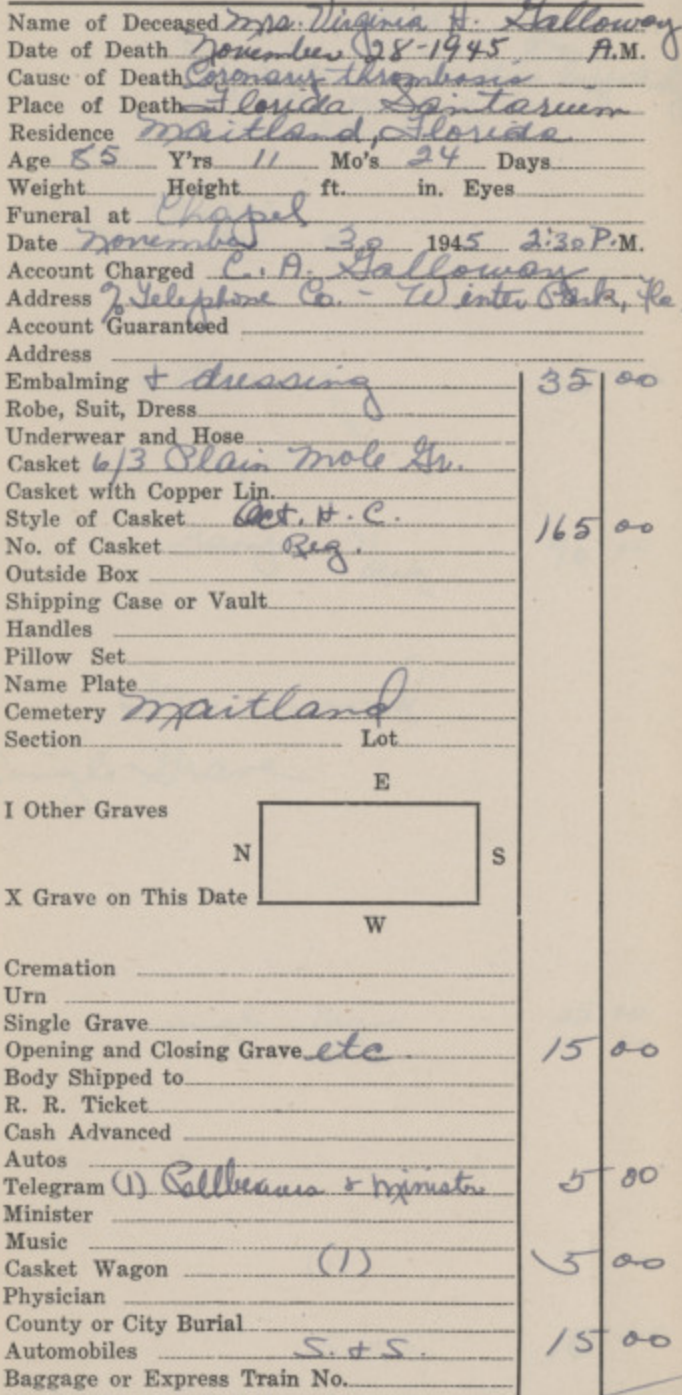 Name of Deceased Mrs. Virginia H. Galloway
Date of Death November 28-1945 A.M.
Cause of Death Coronary thrombosis
Place of Death Florida Sanitarium
Residence Maitland, Florida
Age 85 Y'rs 11 Mo's 24 Days
Weight Height ft. in. Eyes
Funeral at Chapel
Date November 30 1945 2:30 P.M.
Account Charged C. A. Galloway
Address % Telephone Co. - Winter Park, Fla
Account Guaranteed
Address
Embalming & dressing 35 00
Robe, Suit, Dress
Underwear and Hose
Casket 6/3 Plain Mole Gr.
Casket with Copper Lin.
Style of Casket Oct. H. C. 165 00
No. of Casket Reg.
Outside Box
Shipping Case or Vault
Handles
Pillow Set
Name Plate
Cemetery Maitland
Section Lot
E
I Other Graves
N S
X Grave on This Date
W
Cremation
Urn
Single Grave
Opening and Closing Grave etc 15 00
Body Shipped to
R. R. Ticket
Cash Advanced
Autos
Telegram (1) Pallbearers & Ministe 5 00
Minister
Music
Casket Wagon (1) 5 00
Physician
County or City Burial
Automobiles S. & S. 15 00
Baggage or Express Train No.